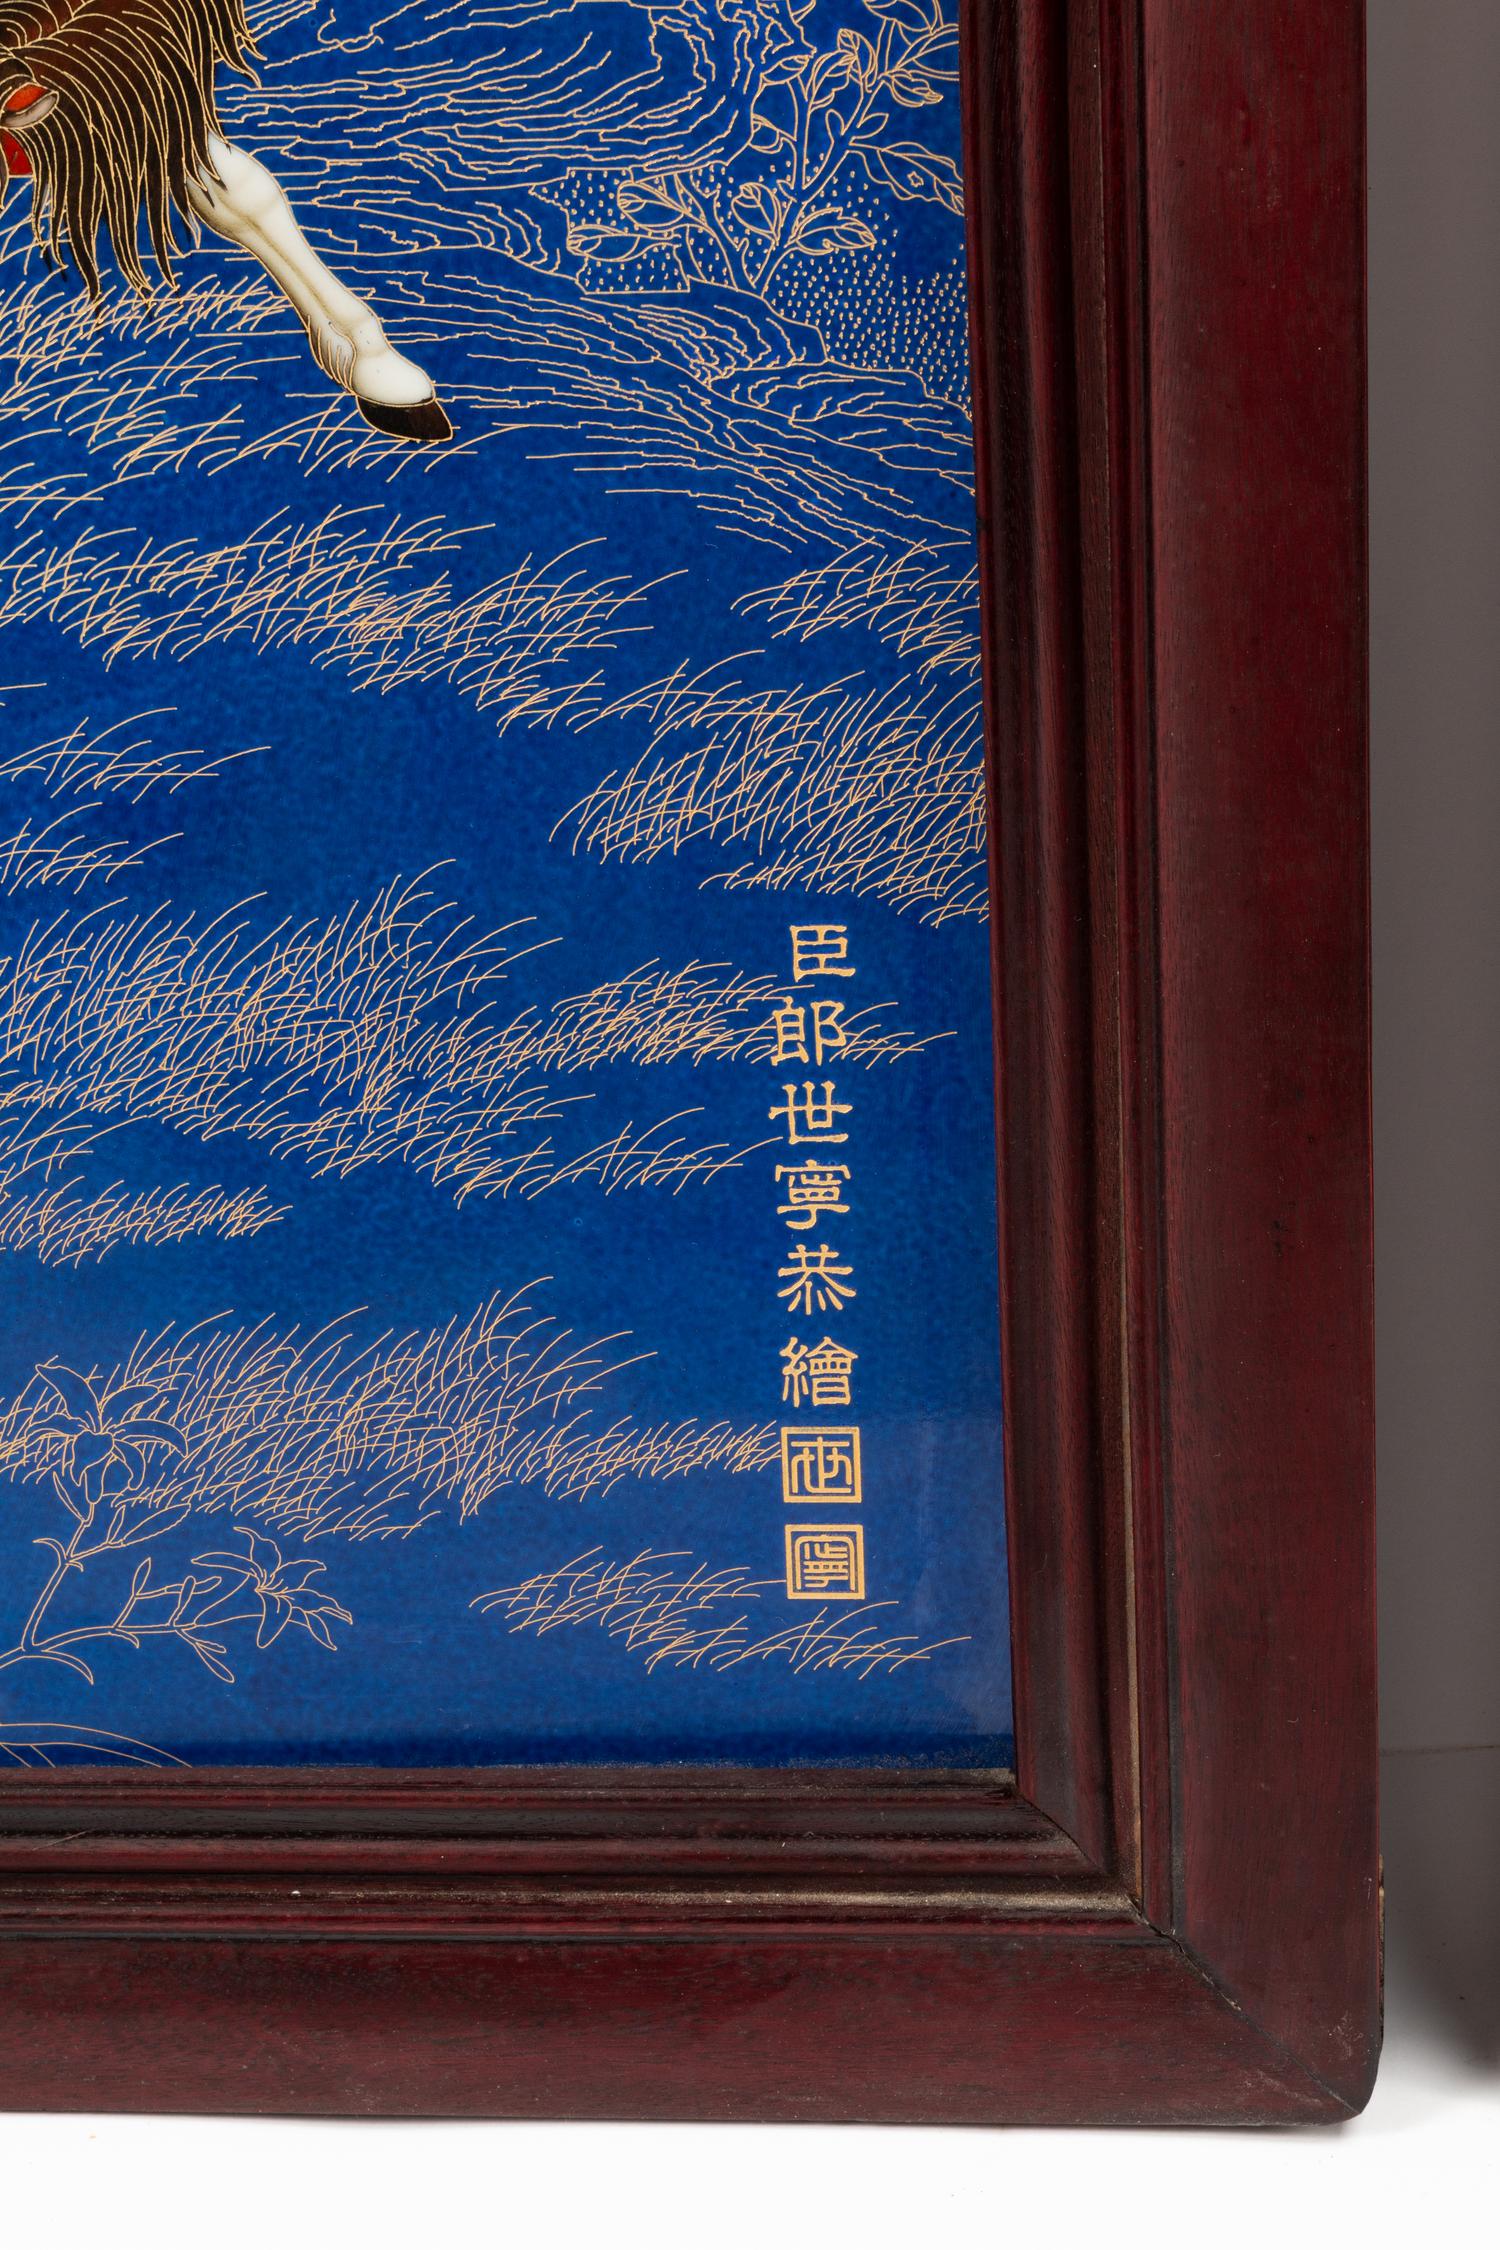 臣郎世寧恭繪
世
寧